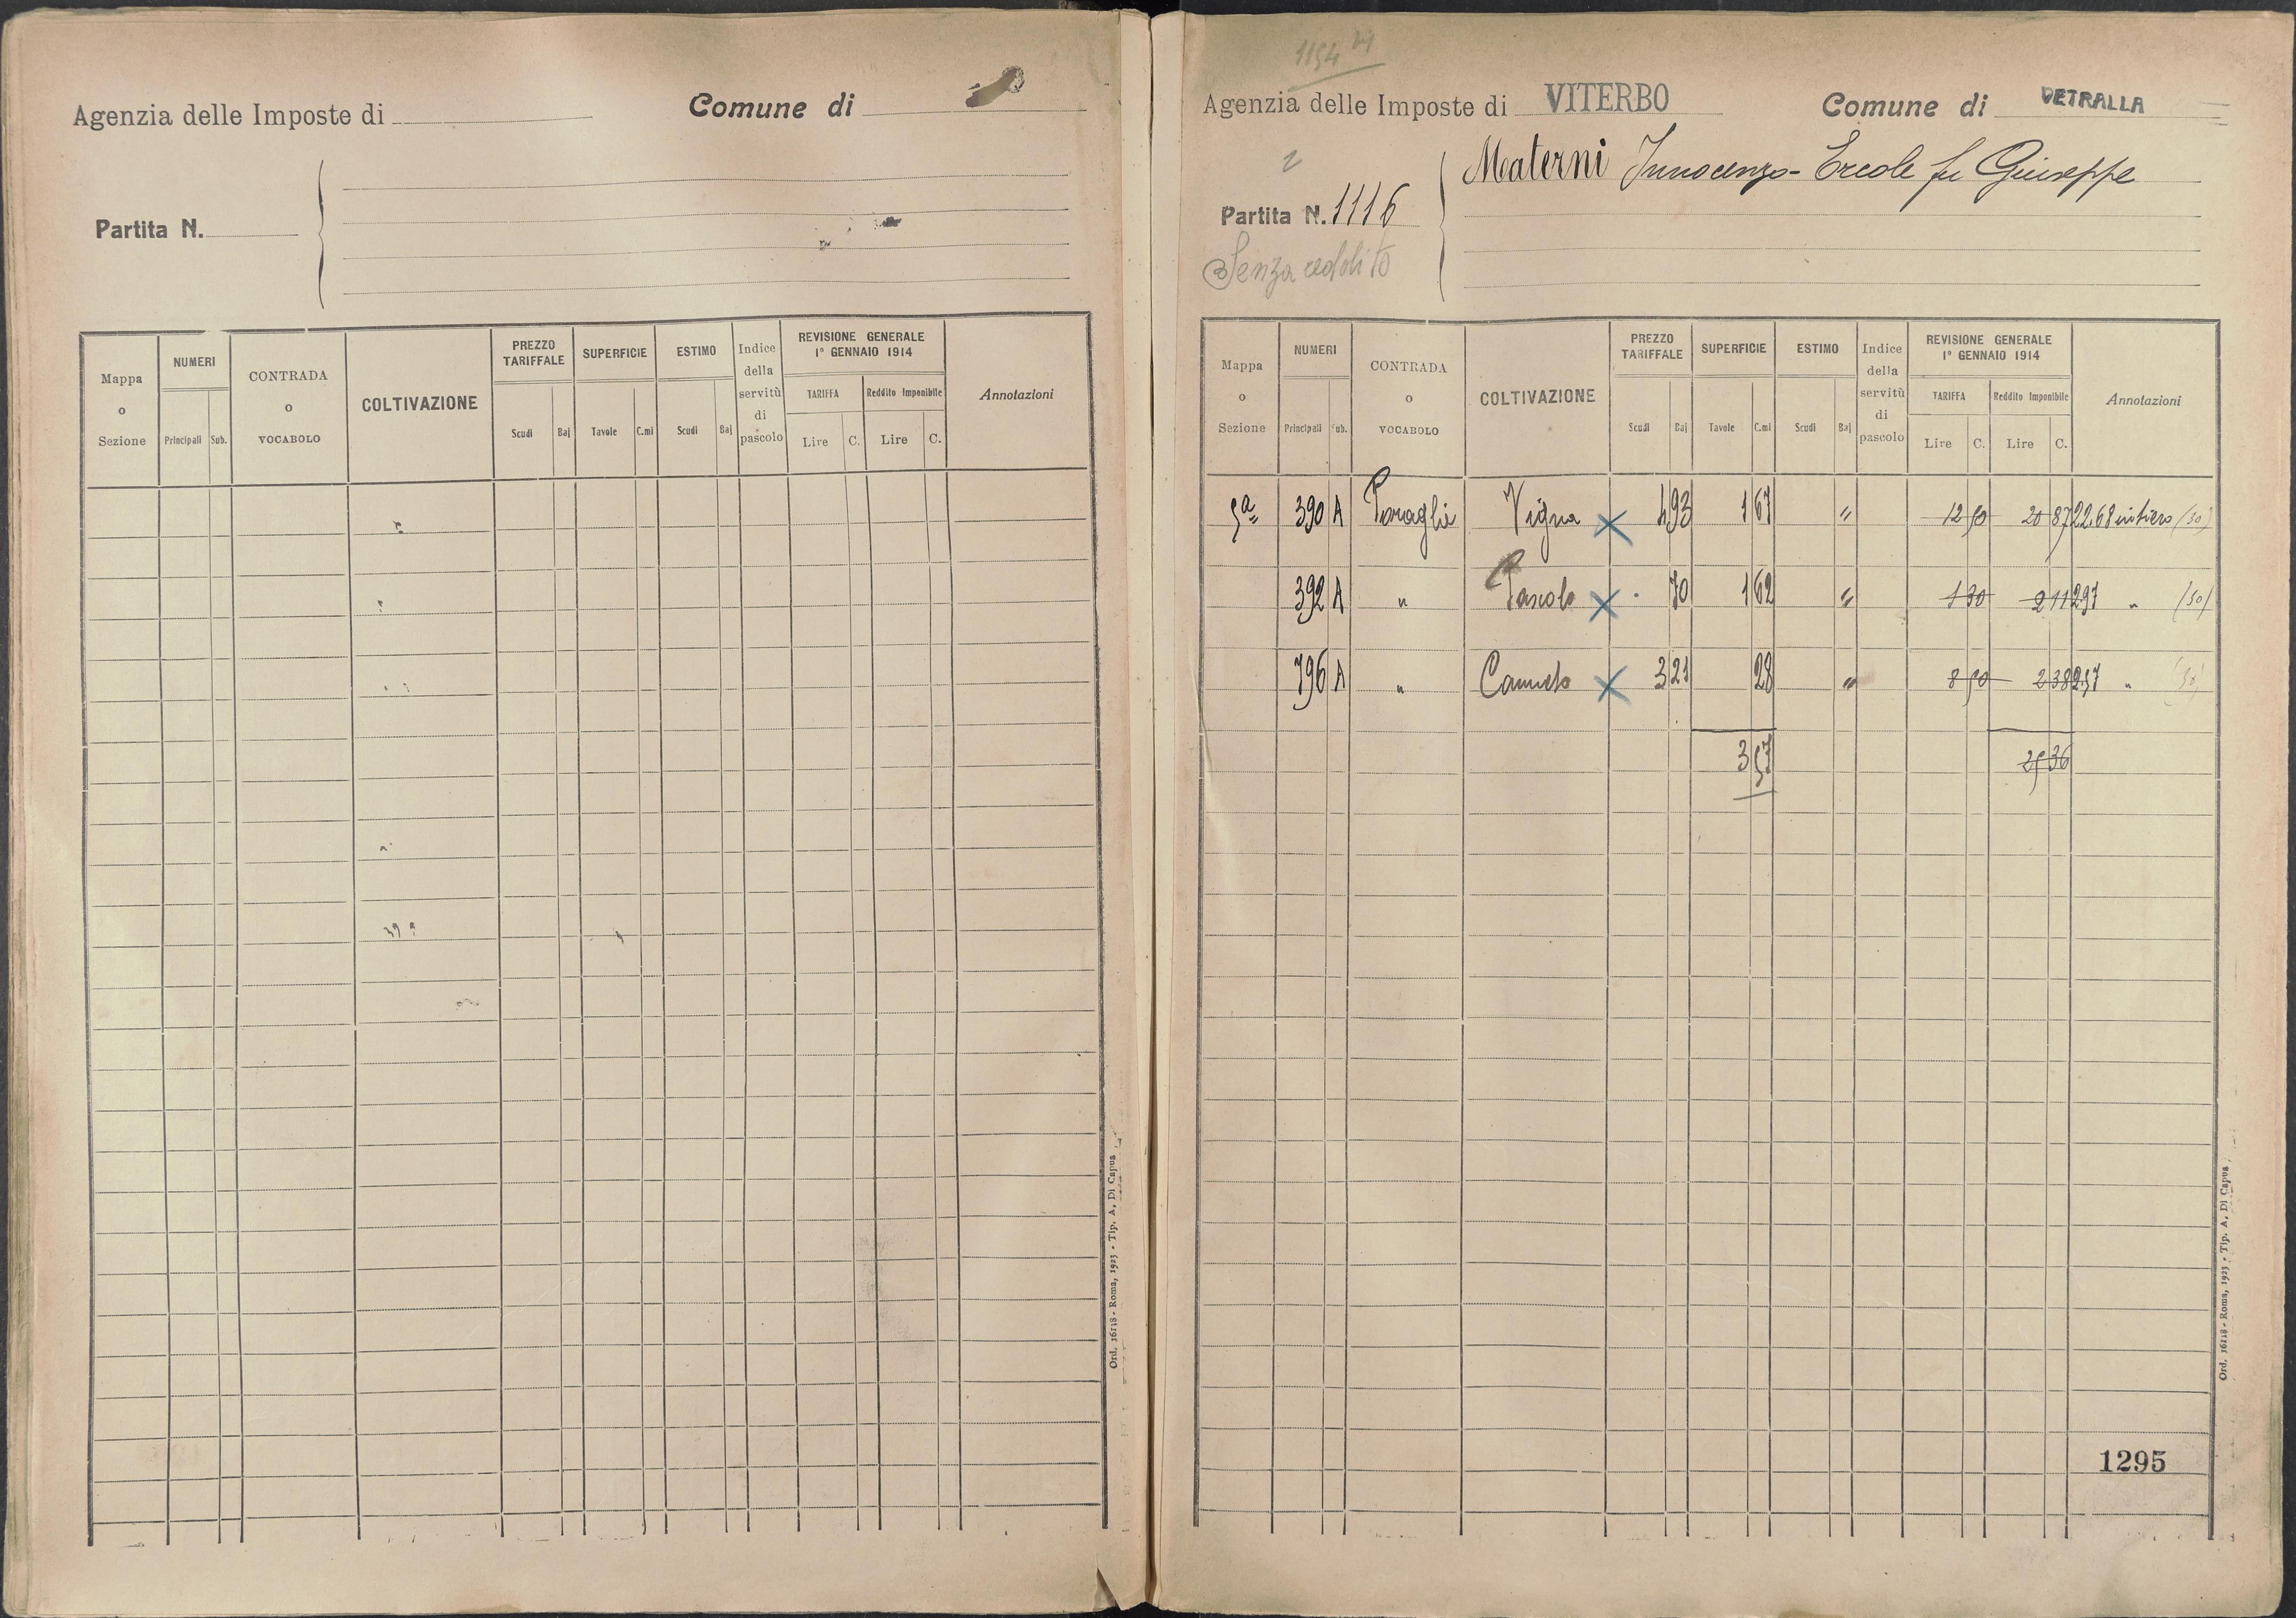 Agenzia delle Imposte di
Comune di
Partita N.
Mappa o Sezione
NUMERI
Principali Sub.
CONTRADA o VOCABOLO
COLTIVAZIONE
PREZZO TARIFFALE
Scudi Baj
SUPERFICIE
Tavole C.mi
ESTIMO
Scudi Baj
Indice della servitù di pascolo
REVISIONE GENERALE
1° GENNAIO 1914
TARIFFA Reddito Imponibile
Lire C. Lire C.
Annotazioni
Ord. 16118 - Roma, 1923 - Tip. A. Di Capua
1154
Agenzia delle Imposte di VITERBO Comune di VETRALLA
Materni Innocenzo-Ercole fu Giuseppe
Partita N. 1116
Senza reddito
Mappa o Sezione
NUMERI
Principali Sub.
CONTRADA o VOCABOLO
COLTIVAZIONE
PREZZO TARIFFALE
Scudi Baj
SUPERFICIE
Tavole C.mi
ESTIMO
Scudi Baj
Indice della servitù di pascolo
REVISIONE GENERALE
1° GENNAIO 1914
TARIFFA Reddito Imponibile
Lire C. Lire C.
Annotazioni
5a 390 A Vigna 4 93 1 67 " 12 50 20 87 22.68 intiero (30)
392 A " Pascolo 70 1 62 " 1 30 2 11 2.97 " (30)
796 A " Canneto 3 21 28 " 8 50 2 38 2.57 " (30)
3 57 25 36
1295
Ord. 16118 - Roma, 1923 - Tip. A. Di Capua